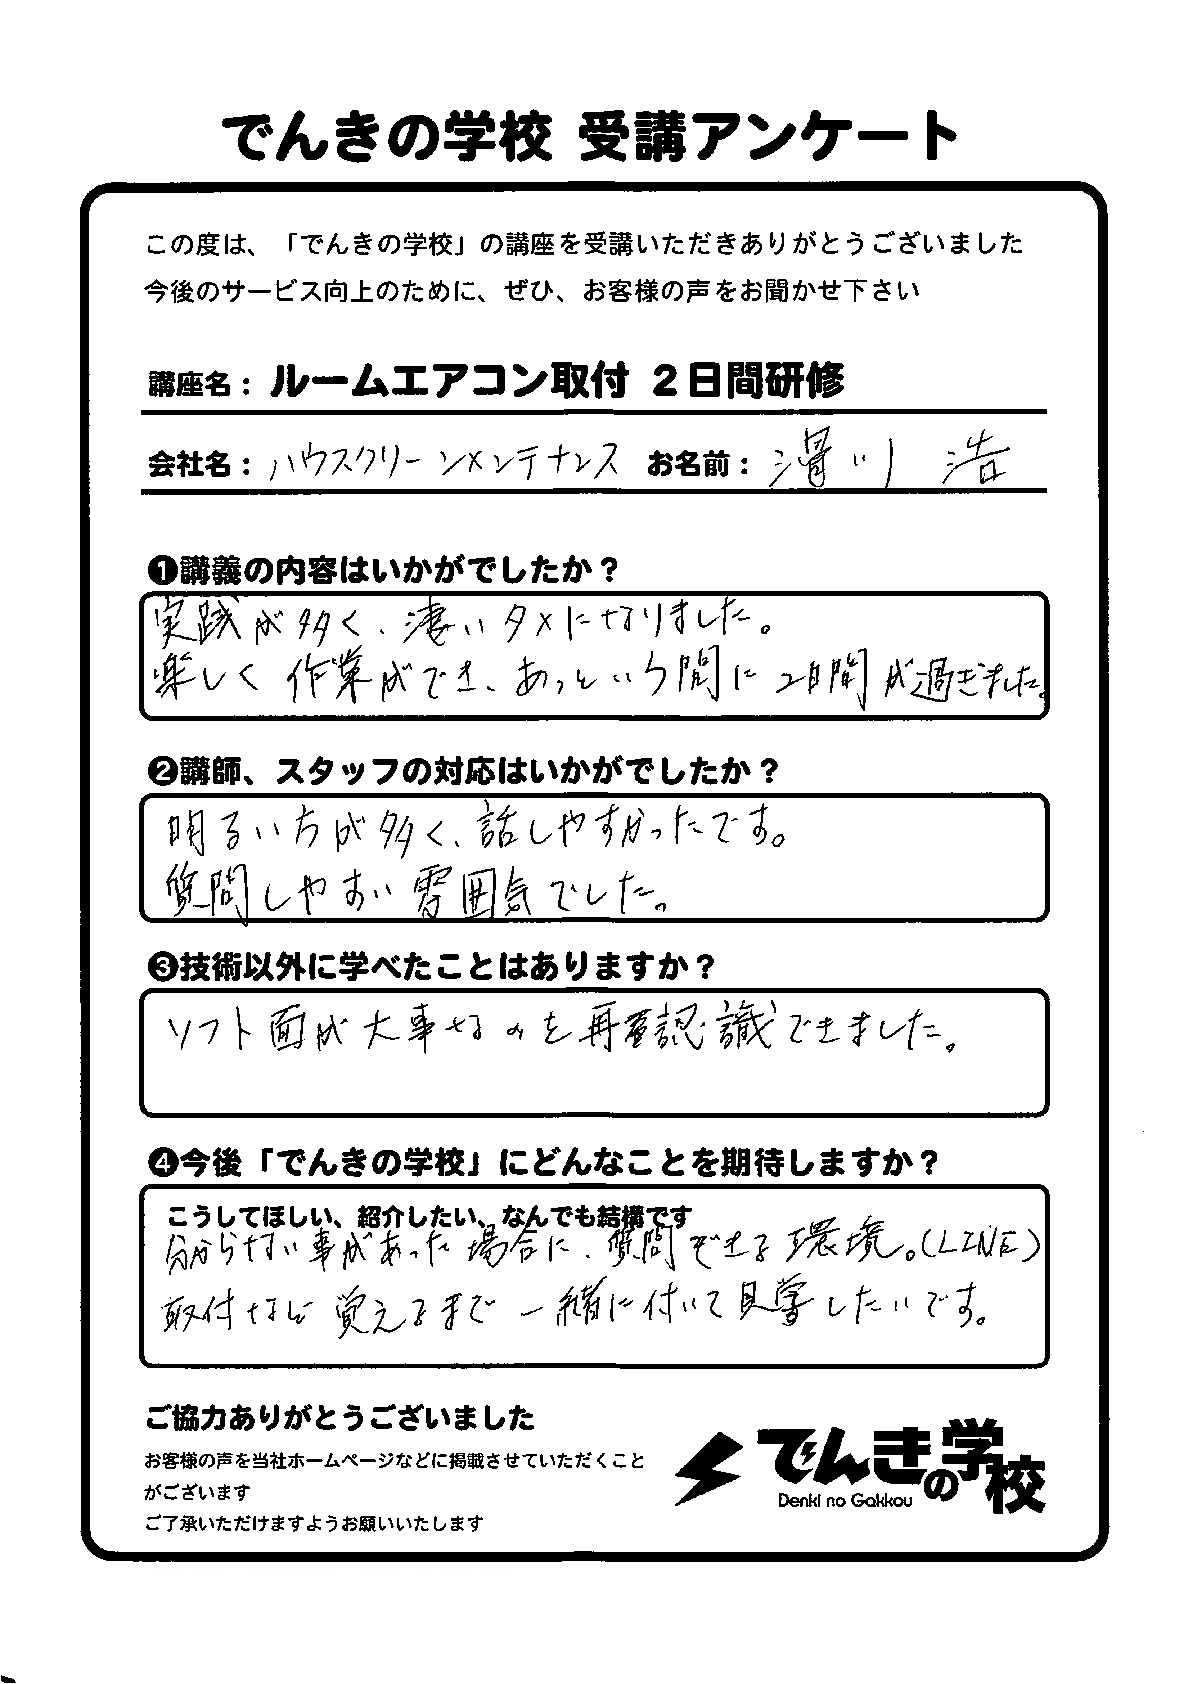 でんきの学校 受講アンケート
この度は、「でんきの学校」の講座を受講いただきありがとうございました
今後のサービス向上のために、ぜひ、お客様の声をお聞かせ下さい
講座名：ルームエアコン取付 ２日間研修
会社名：ハウスクリーンメンテナンス お名前：滑川 浩
❶講義の内容はいかがでしたか？
実践が多く、凄いタメになりました。
楽しく作業ができ、あっという間に2日間が過ぎました。
❷講師、スタッフの対応はいかがでしたか？
明るい方が多く、話しやすかったです。
質問しやすい雰囲気でした。
❸技術以外に学べたことはありますか？
ソフト面が大事なのを再確認識できました。
❹今後「でんきの学校」にどんなことを期待しますか？
こうしてほしい、紹介したい、なんでも結構です
分からない事があった場合に、質問できる環境。(LINE)
取付など覚えるまで一緒に付いて見学したいです。
ご協力ありがとうございました
お客様の声を当社ホームページなどに掲載させていただくこと
がございます
ご了承いただけますようお願いいたします
でんきの学校
Denki no Gakkou